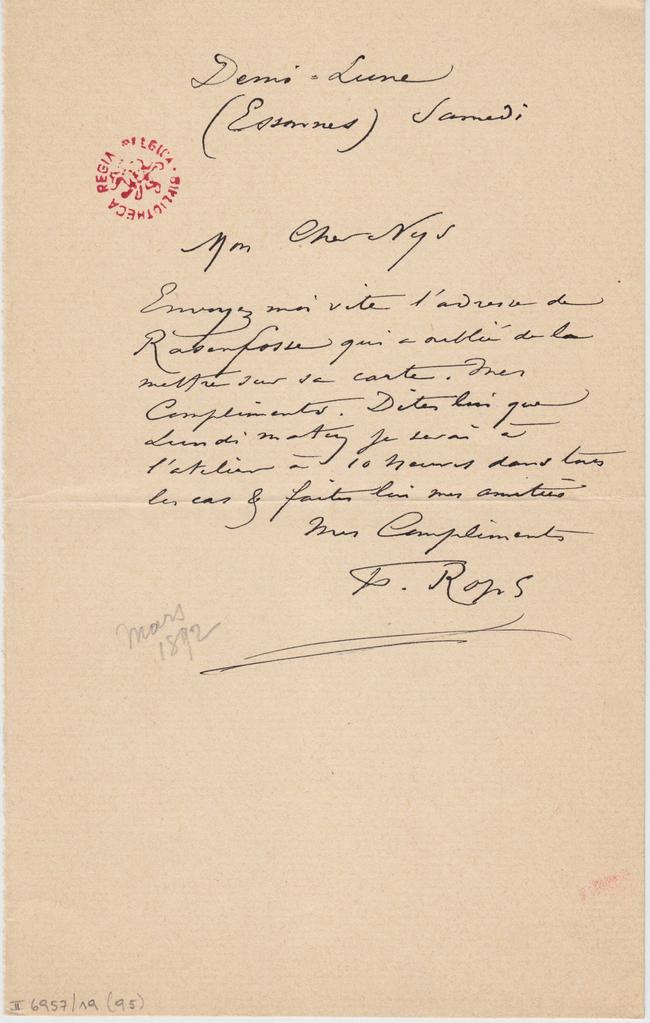 Demi-Lune
(Essonnes) Samedi
REGIA BELGICA · BIBLIOTHECA
Mon Cher Nys
Envoyez moi vite l'adresse de
Rasenfosse qui a oublié de la
mettre sur sa carte. Mes
Compliments. Dites lui que
Lundi matin je serai à
l'atelier à 10 heures dans tous
les cas & faites lui mes amitiés
Mes Compliments
F. Rops
mars
1892
II 6957/19 (95)